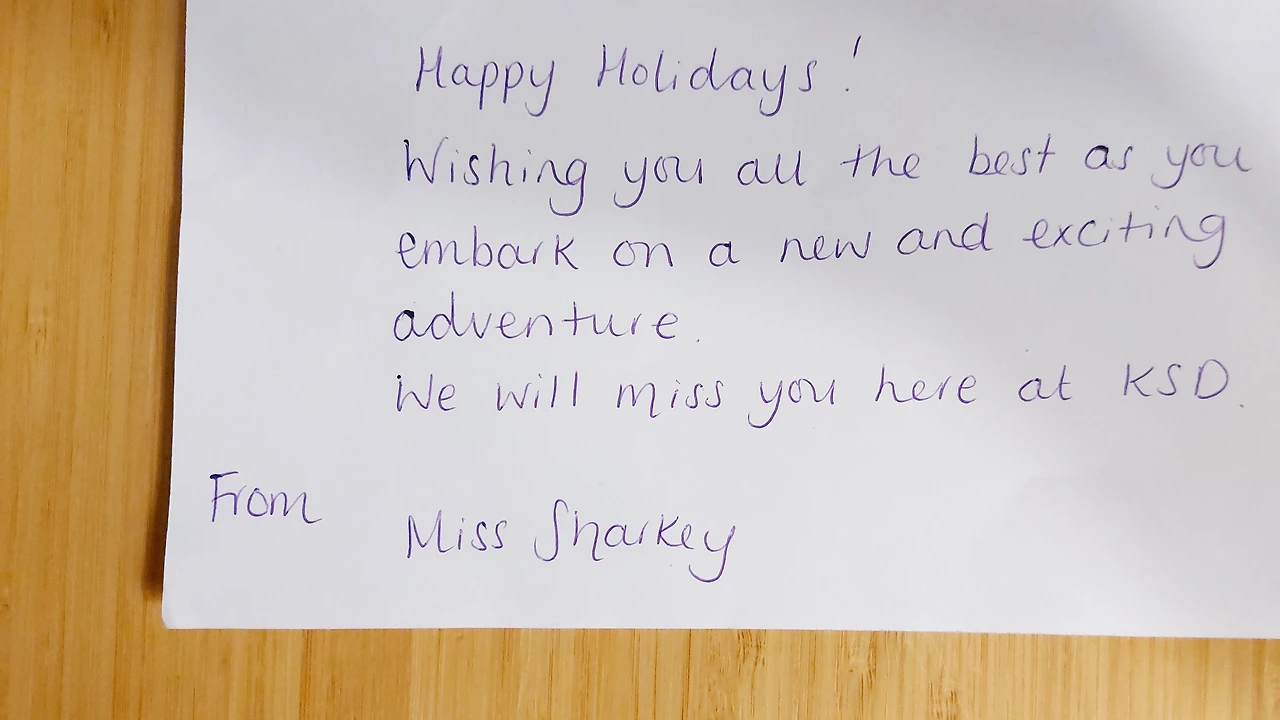 Happy Holidays!
Wishing you all the best as you
embark on a new and exciting
adventure.
We will miss you here at KSD.
From Miss Sharkey